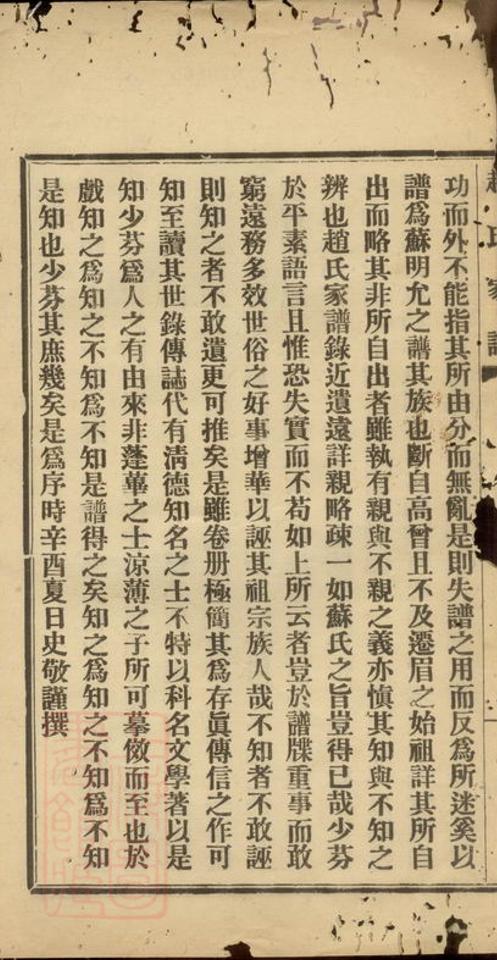 趙氏家譜
功而外不能指其所由分而無亂是則失譜之用而反為所迷奚以
譜為蘇明允之譜其族也斷自高曾且不及遷眉之始祖詳其所自
出而略其非所自出者雖執有親與不親之義亦慎其知與不知之
辨也趙氏家譜錄近遺遠詳親略疎一如蘇氏之旨豈得已哉少芬
於平素語言且惟恐失實而不苟如上所云者豈於譜牒重事而敢
窮遠務多效世俗之好事增華以誣其祖宗族人哉不知者不敢誣
則知之者不敢遺更可推矣是雖卷册極簡其為存眞傳信之作可
知至讀其世錄傳誌代有淸德知名之士不特以科名文學著以是
知少芬為人之有由來非蓬蓽之士涼薄之子所可摹倣而至也於
戲知之為知之不知為不知是譜得之矣知之為知之不知為不知
是知也少芬其庶幾矣是為序時辛酉夏日史敬謹撰